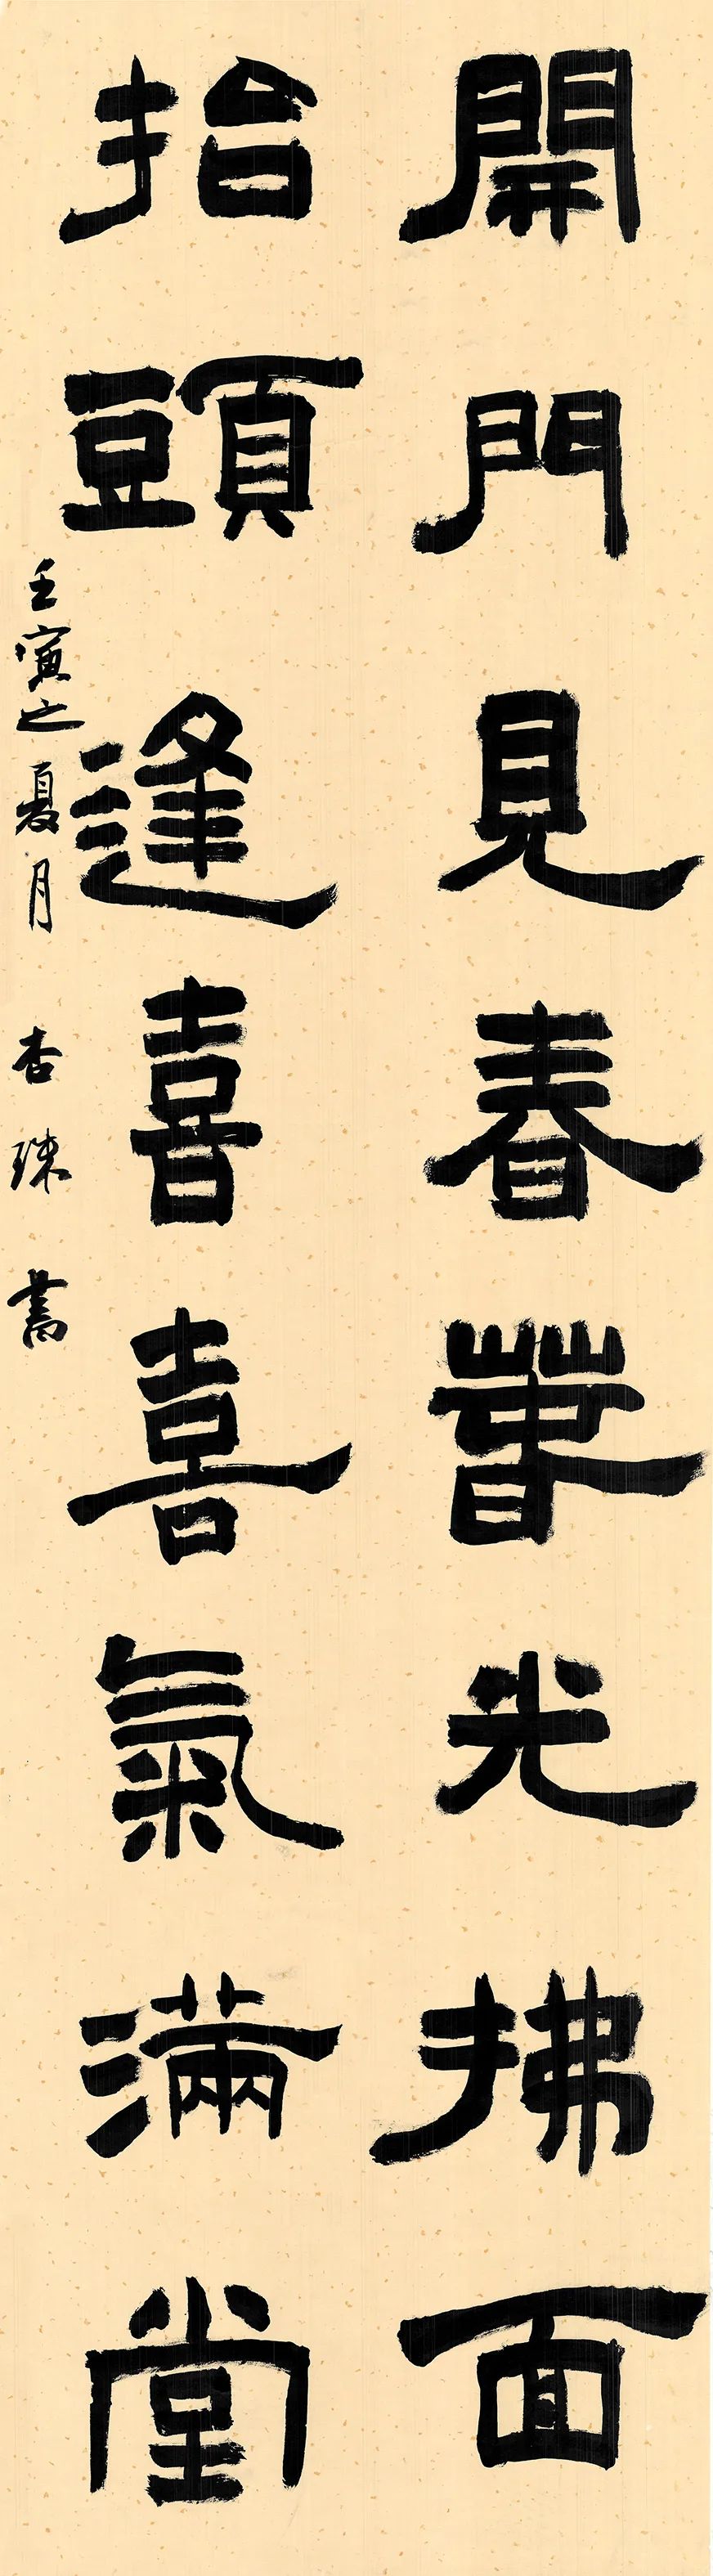 開門見春萅光拂面
抬頭逢喜喜氣滿堂
壬寅之夏月 杏珠書